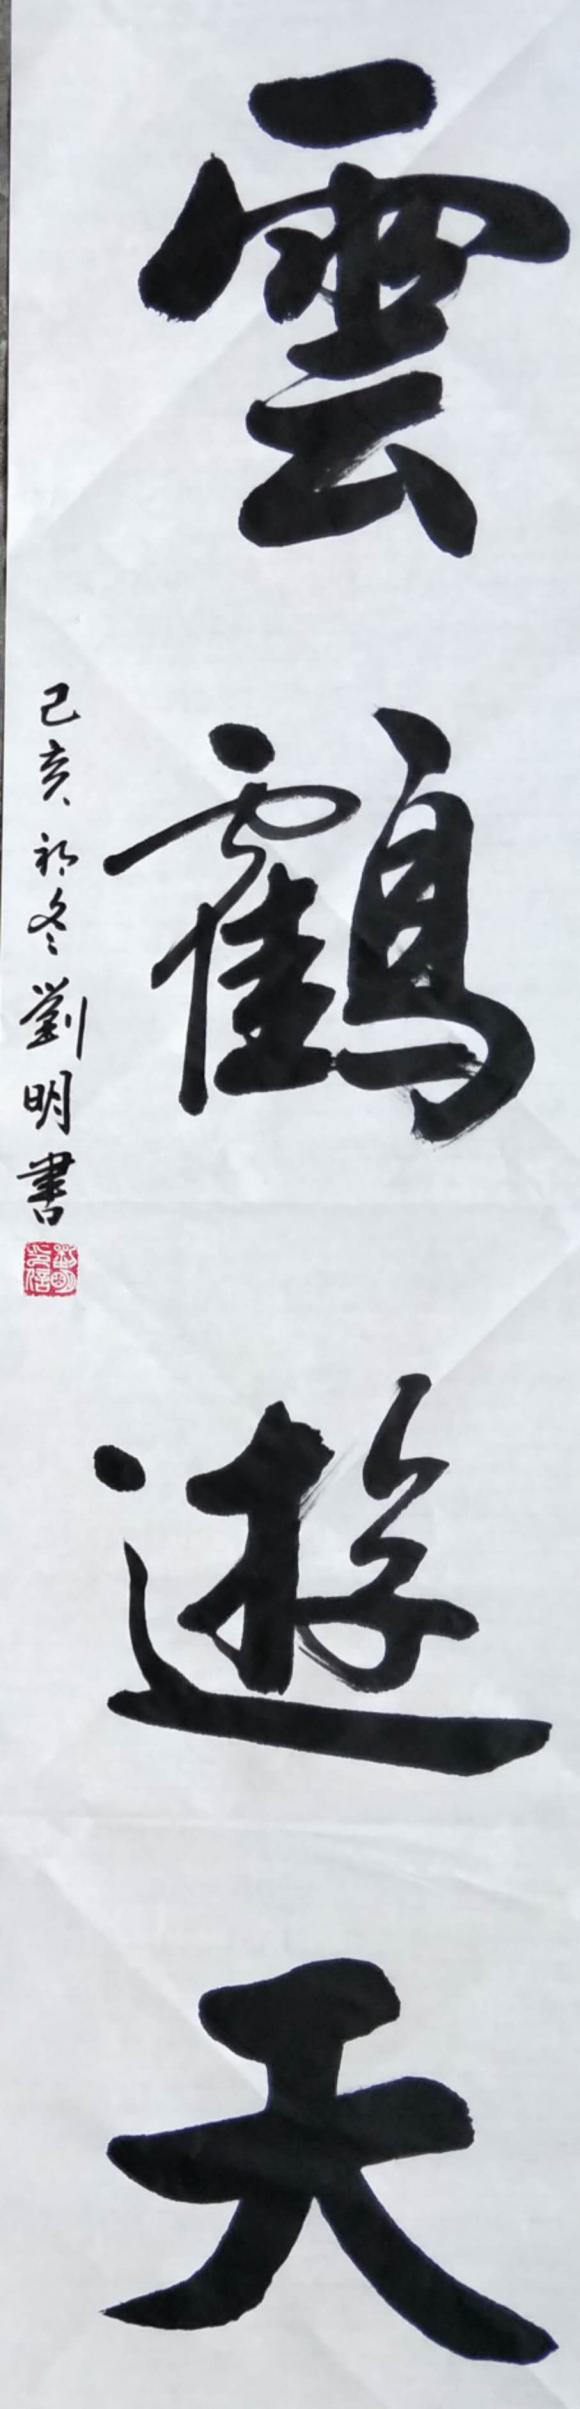 雲鶴遊天
己亥初冬劉明書